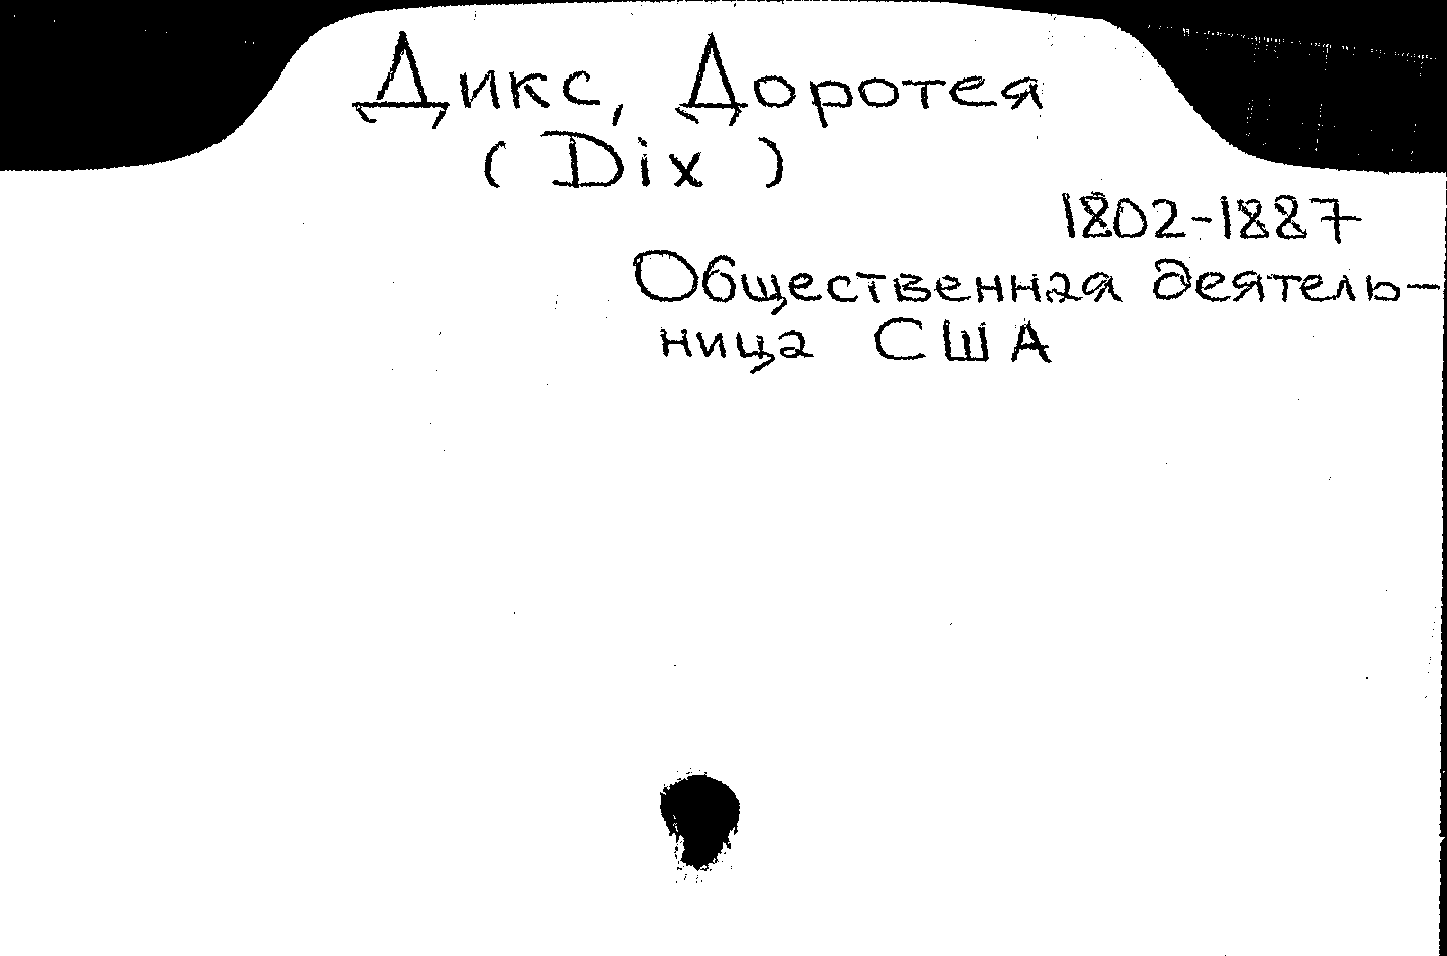 Дикс, Доротея
(Dix)
1802-1887
Общественная деятель-
ница США